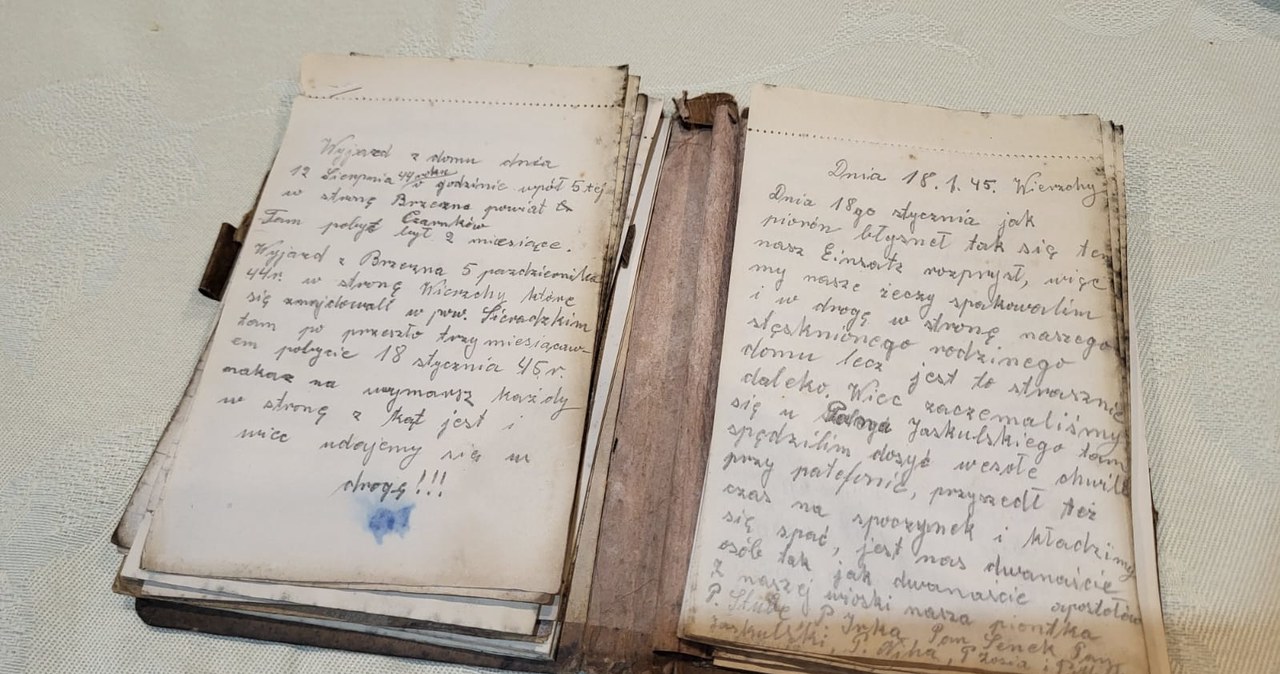 Wyjazd z domu dnia
12 Sierpnia 44 roku o godzinie wpół 5 tej
w stronę Brzezna powiat
Czarnków
Tam pobyt był 2 miesiące.
Wyjazd z Brzezna 5 pazdziernika
44 r. w stronę Wierzchy które
się znajdowali w pow. Sieradzkim
tam po przeszło trzy miesiącow-
em pobycie 18 stycznia 45 r.
nakaz na wymarsz każdy
w stronę z kąt jest i
wiec udajemy się w
drogę!!!
Dnia 18.1.45. Wierzchy
Dnia 18go stycznia jak
piorón błysneł tak się ten
nasz Einsatz rozprysł, więc
my nasze żeczy spakowalim
i w drogę w stronę naszego
stęsknionego rodzinego
domu lecz jest to strasznie
daleko. Wiec zaczemaliśmy
się u Jaskulskiego tam
spędzilim dosyć wesołe chwile
przy patefonie, przyszedł też
czas na spoczynek i kładzimy
się spać, jest nas dwanaście
osób tak jak dwanaście apostołów
z naszej wioski nasza piontka
P. Inka, Pan Senek
Jaskulski, P. Zosia i